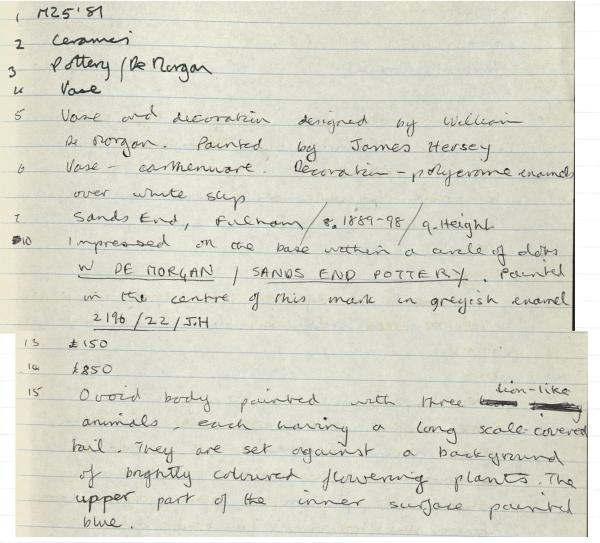 1 M25'81
2 Ceramics
3 Pottery / De Morgan
4 Vase
5 Vase and decoration designed by William
De Morgan. Painted by James Hersey
6 Vase - earthenware. Decoration - polychrome enamels
over white slip
7 Sands End, Fulham / 8. 1889-98 / 9. Height
10 Impressed on the base within a circle of dots
W DE MORGAN / SANDS END POTTERY. Painted
in the centre of this mark in greyish enamel
2196 / 22 / J.H
13 £150
14 £850
15 Ovoid body painted with three lion-like
animals, each having a long scale-covered
tail. They are set against a background
of brightly coloured flowering plants. The
upper part of the inner surface painted
blue.